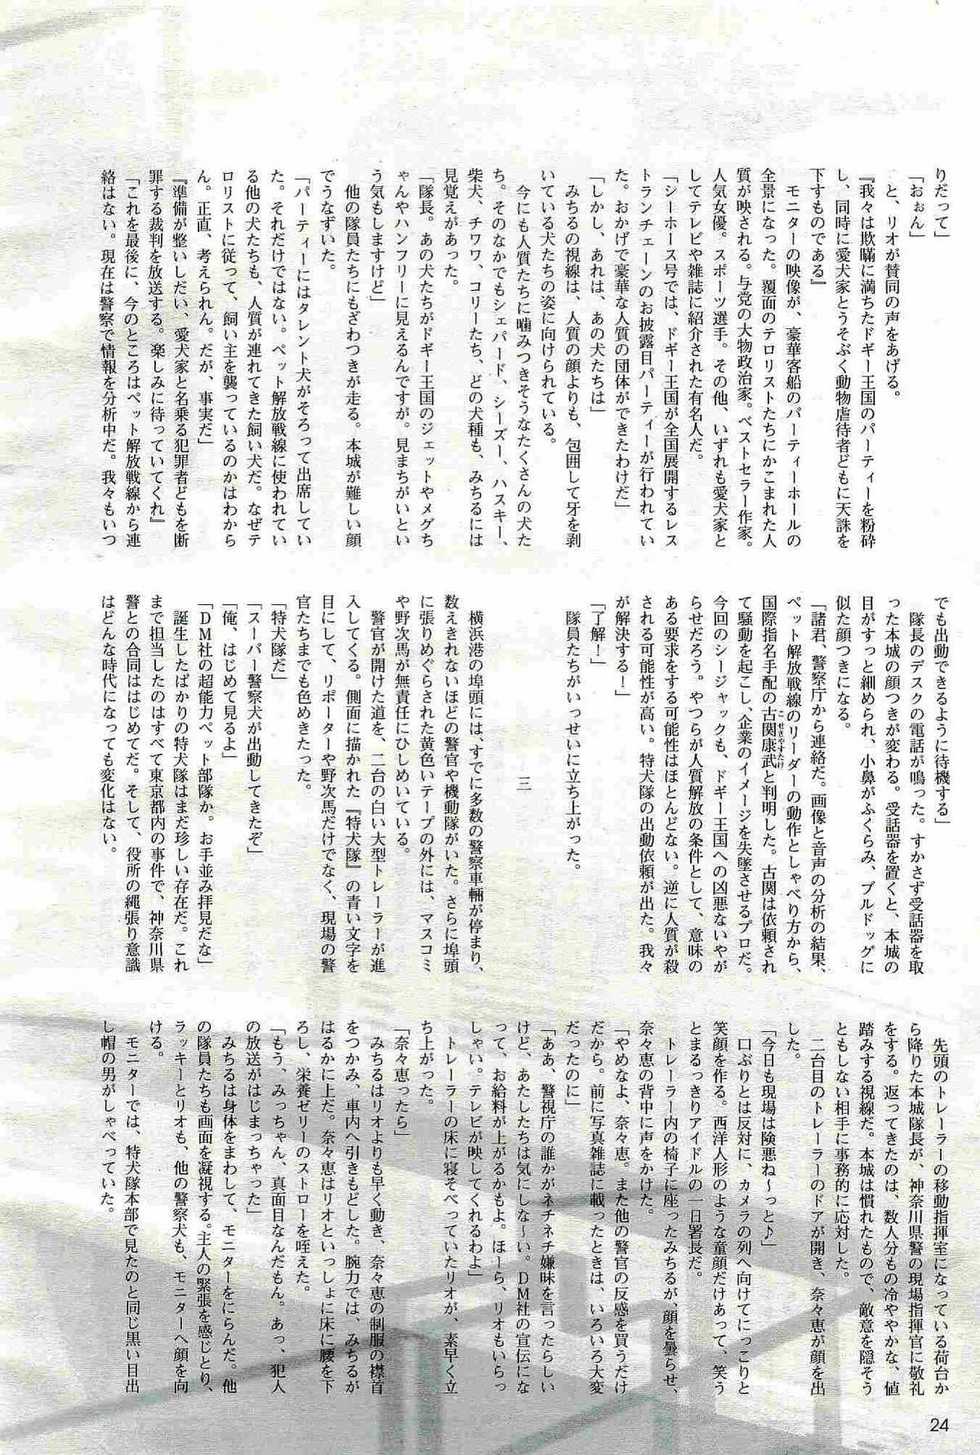 りだって」
「おぉん」
　と、リオが賛同の声をあげる。
『我々は欺瞞に満ちたドギー王国のパーティーを粉砕
し、同時に愛犬家とうそぶく動物虐待者どもに天誅を
下すものである』
　モニターの映像が、豪華客船のパーティーホールの
全景になった。覆面のテロリストたちにかこまれた人
質が映される。与党の大物政治家。ベストセラー作家。
人気女優。スポーツ選手。その他、いずれも愛犬家と
してテレビや雑誌に紹介された有名人だ。
「シーホース号では、ドギー王国が全国展開するレス
トランチェーンのお披露目パーティーが行われてい
た。おかげで豪華な人質の団体ができたわけだ」
「しかし、あれは、あの犬たちは」
　みちるの視線は、人質の顔よりも、包囲して牙を剥
いている犬たちの姿に向けられている。
　今にも人質たちに噛みつきそうなたくさんの犬た
ち。そのなかでもシェパード、シーズー、ハスキー、
柴犬、チワワ、コリーたち、どの犬種も、みちるには
見覚えがあった。
「隊長。あの犬たちがドギー王国のジェットやメグち
ゃんやハンフリーに見えるんですが。見まちがいとい
う気もしますけど」
　他の隊員たちにもざわつきが走る。本城が難しい顔
でうなずいた。
「パーティーにはタレント犬がそろって出席してい
た。それだけではない。ペット解放戦線に使われてい
る他の犬たちも、人質が連れてきた飼い犬だ。なぜテ
ロリストに従って、飼い主を襲っているのかはわから
ん。正直、考えられん。だが、事実だ」
『準備が整いしだい、愛犬家と名乗る犯罪者どもを断
罪する裁判を放送する。楽しみに待っていてくれ』
「これを最後に、今のところはペット解放戦線から連
絡はない。現在は警察で情報を分析中だ。我々もいつ
でも出動できるように待機する」
　隊長のデスクの電話が鳴った。すかさず受話器を取
った本城の顔つきが変わる。受話器を置くと、本城の
目がすっと細められ、小鼻がふくらみ、ブルドッグに
似た顔つきになる。
「諸君、警察庁から連絡だ。画像と音声の分析の結果、
ペット解放戦線のリーダーの動作としゃべり方から、
国際指名手配の古関康武と判明した。古関は依頼され
て騒動を起こし、企業のイメージを失墜させるプロだ。
今回のシージャックも、ドギー王国への凶悪ないやが
らせだろう。やつらが人質解放の条件として、意味の
ある要求をする可能性はほとんどない。逆に人質が殺
される可能性が高い。特犬隊の出動依頼が出た。我々
が解決する！」
「了解！」
　隊員たちがいっせいに立ち上がった。
三
　横浜港の埠頭には、すでに多数の警察車輛が停まり、
数えきれないほどの警官や機動隊がいた。さらに埠頭
に張りめぐらされた黄色いテープの外には、マスコミ
や野次馬が無責任にひしめいている。
　警官が開けた道を、二台の白い大型トレーラーが進
入してくる。側面に描かれた『特犬隊』の青い文字を
目にして、リポーターや野次馬だけでなく、現場の警
官たちまでも色めきたった。
「特犬隊だ」
「スーパー警察犬が出動してきたぞ」
「俺、はじめて見るよ」
「ＤＭ社の超能力ペット部隊か。お手並み拝見だな」
　誕生したばかりの特犬隊はまだ珍しい存在だ。これ
まで担当したのはすべて東京都内の事件で、神奈川県
警との合同ははじめてだ。そして、役所の縄張り意識
はどんな時代になっても変化はない。
　先頭のトレーラーの移動指揮室になっている荷台か
ら降りた本城隊長が、神奈川県警の現場指揮官に敬礼
をする。返ってきたのは、数人分もの冷ややかな、値
踏みする視線だ。本城は慣れたもので、敵意を隠そう
ともしない相手に事務的に応対した。
　二台目のトレーラーのドアが開き、奈々恵が顔を出
した。
「今日も現場は険悪ね～っと♪」
　口ぶりとは反対に、カメラの列へ向けてにっこりと
笑顔を作る。西洋人形のような童顔だけあって、笑う
とまるっきりアイドルの一日署長だ。
　トレーラー内の椅子に座ったみちるが、顔を曇らせ、
奈々恵の背中に声をかけた。
「やめなよ、奈々恵。また他の警官の反感を買うだけ
だから。前に写真雑誌に載ったときは、いろいろ大変
だったのに」
「ああ、警視庁の誰かがネチネチ嫌味を言ったらしい
けど、あたしたちは気にしな～い。ＤＭ社の宣伝にな
って、お給料が上がるかもよ。ほーら、リオもいらっ
しゃい。テレビが映してくれるわよ」
　トレーラーの床に寝そべっていたリオが、素早く立
ち上がった。
「奈々恵ったら」
　みちるはリオよりも早く動き、奈々恵の制服の襟首
をつかみ、車内へ引きもどした。腕力では、みちるが
はるかに上だ。奈々恵はリオといっしょに床に腰を下
ろし、栄養ゼリーのストローを咥えた。
「もう、みっちゃん、真面目なんだもん。あっ、犯人
の放送がはじまっちゃった」
　みちるは身体をまわして、モニターをにらんだ。他
の隊員たちも画面を凝視する。主人の緊張を感じとり、
ラッキーとリオも、他の警察犬も、モニターへ顔を向
ける。
　モニターでは、特犬隊本部で見たのと同じ黒い目出
し帽の男がしゃべっていた。
24